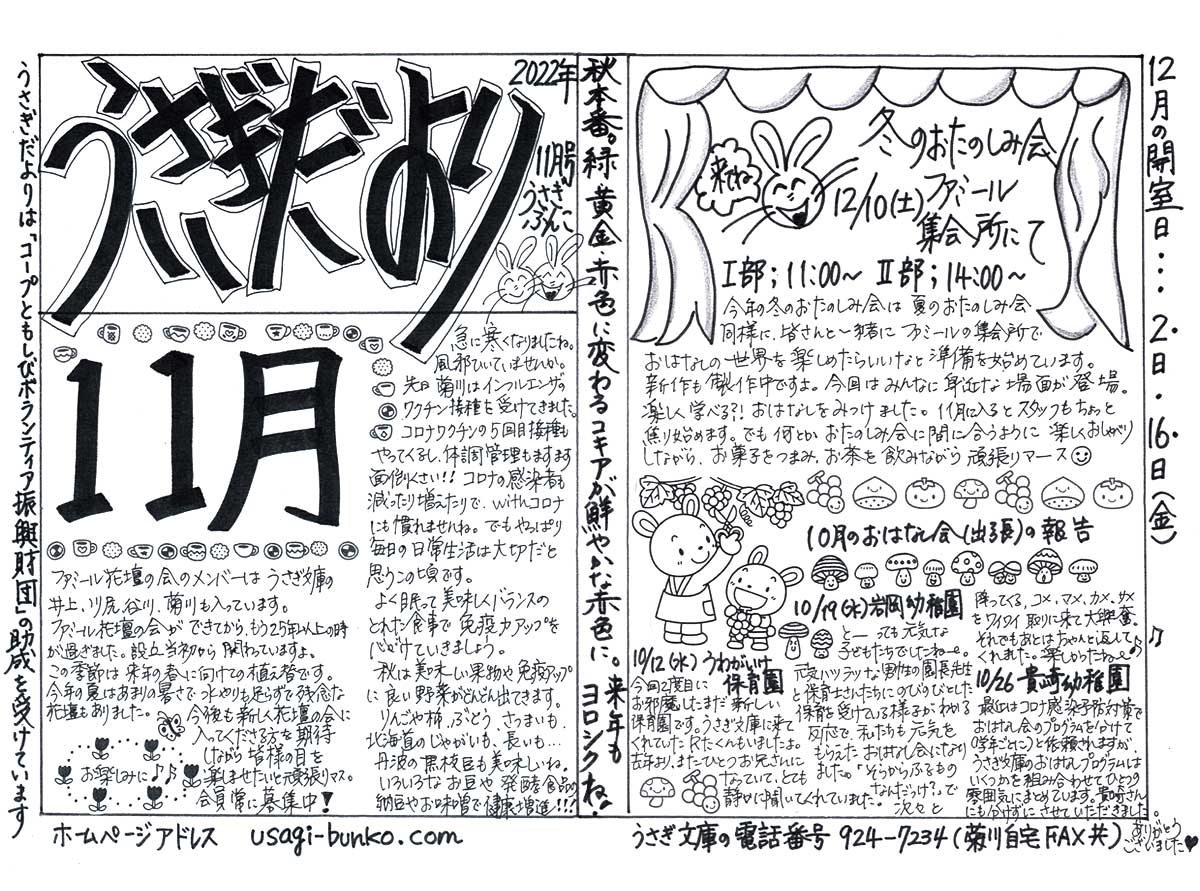 うさぎだより
2022年
11月号
うさぎ
ぶんこ
うさぎだよりは「コープともしびボランティア振興財団」の助成を受けています
11月
急に寒くなりましたね。
風邪ひいていませんか。
先日菊川はインフルエンザの
ワクチン接種を受けてきました。
コロナワクチンの5回目接種も
やってくるし、体調管理もますます
面倒くさい!! コロナの感染者も
減ったり増えたりで、withコロナ
にも慣れませんね。でもやっぱり
毎日の日常生活は大切だと
思うこの頃です。
よく眠って美味しくバランスの
とれた食事で"免疫力アップ"を
心がけていきましょう。
秋は美味しい果物や免疫アップ
に良い野菜がどんどん出てきます。
りんごや柿、ぶどう さつまいも、
北海道のじゃがいも、長いも…
丹波の黒枝豆も美味しいね。
いろいろなお豆や発酵食品の
納豆やお味噌で健康増進!!!
ファミール花壇の会のメンバーは うさぎ文庫の
井上、川尻、谷川、菊川も入っています。
ファミール花壇の会ができてから、もう25年以上の時
が過ぎました。設立当初から関わっていますよ。
この季節は来年の春に向けての植え替です。
今年の夏はあまりの暑さで水やりも足らずで残念な
花壇もありました。
今後も新しく花壇の会に
入ってくださる方を期待
しながら皆様の目を
楽しませたいと頑張りマス。
会員常に募集中!
お楽しみに♪♪
秋本番。緑、黄金、赤色に変わるコキアが鮮やかな赤色に。来年もヨロシクね。
来てね
冬のおたのしみ会
12/10(土) ファミール
集会所にて
Ⅰ部;11:00〜 Ⅱ部;14:00〜
今年の冬のおたのしみ会は夏のおたのしみ会
同様に、皆さんと一緒に ファミールの集会所で
おはなしの世界を楽しめたらいいなと準備を始めています。
新作も制作中ですよ。今回はみんなに身近な場面が登場。
楽しく学べる?! おはなしをみつけました。11月に入るとスタッフもちょっと
焦り始めます。でも何とか おたのしみ会に間に合うように 楽しくおしゃべり
しながら、お菓子をつまみ、お茶を飲みながら頑張りマース
10月のおはなし会(出張)の報告
10/12(水) うわがいけ
保育園
今回2度目に
お邪魔したまだ新しい
保育園です。うさぎ文庫に来て
くれていたRたくんもいましたよ。
去年より、またひとつお兄さんに
なっていて、とても
静かに聞いてくれていました。
10/19(水)岩岡幼稚園
とーっても元気な
子どもたちでしたねー。
元気ハツラツな男性の園長先生
と保育士さんたちにのびのびとした
保育を受けている様子がわかる
反応で、私たちも元気を
もらえたおはなし会になり
ました。「そらからふるもの
なんだっけ?」で
次々と
降ってくる、コメ、マメ、カメ、ダメ
をワイワイ取りに来て大興奮。
それでもあとはちゃんと返して
くれました。楽しかったねー♪
10/26 貴崎幼稚園
最近はコロナ感染予防対策で
おはなし会のプログラムを分けて
(学年ごとに)と依頼されますが、
うさぎ文庫のおはなしプログラムは
いくつかを組み合わせてひとつの
雰囲気にまとめています。貴崎さん
にも分けずにさせていただきました。
ありがとう
ございました♥
12月の開室日… 2日・16日(金)
♫
ホームページアドレス usagi-bunko.com
うさぎ文庫の電話番号 924-7234(菊川自宅FAX共)